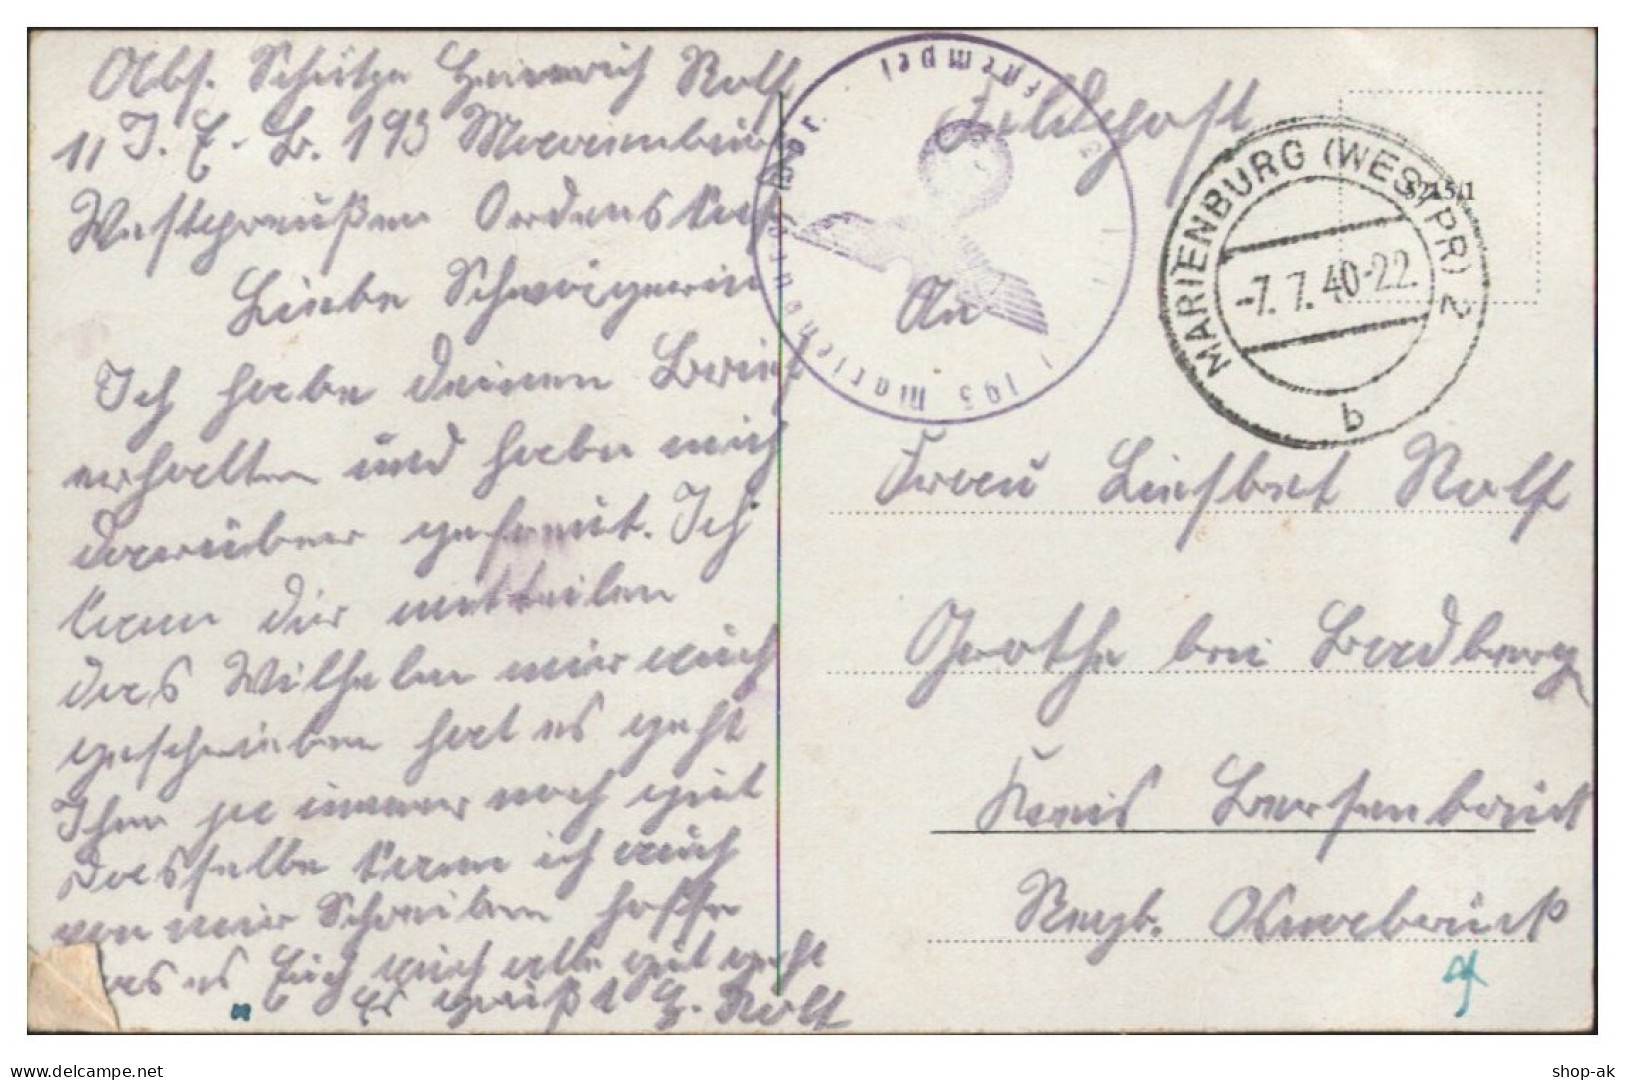 Abs. Schütze Heinrich Rolf
11 I. E. B. 193 Marienburg
Westpreußen Ordens
Liebe Schwägerin
Ich habe deinen Brief
erhalten und habe mich
darüber gefreut. Ich
kann dir mitteilen
das Wilhelm mir auch
geschrieben hat es geht
Ihm ja immer noch gut
Dasselbe kann ich auch
von mir Schreiben hoffe
das es Euch auch alle gut geht
Es grüßt H. Rolf
Feldpost
An
Frau Liesbet Rolf
Grothe bei Badbergen
Kreis Bersenbrück
Regb. Osnabrück
MARIENBURG (WESTPR) 2
-7.7.40-22.
b
5215/1
193 Marienburg/Wpr.
shop-ak